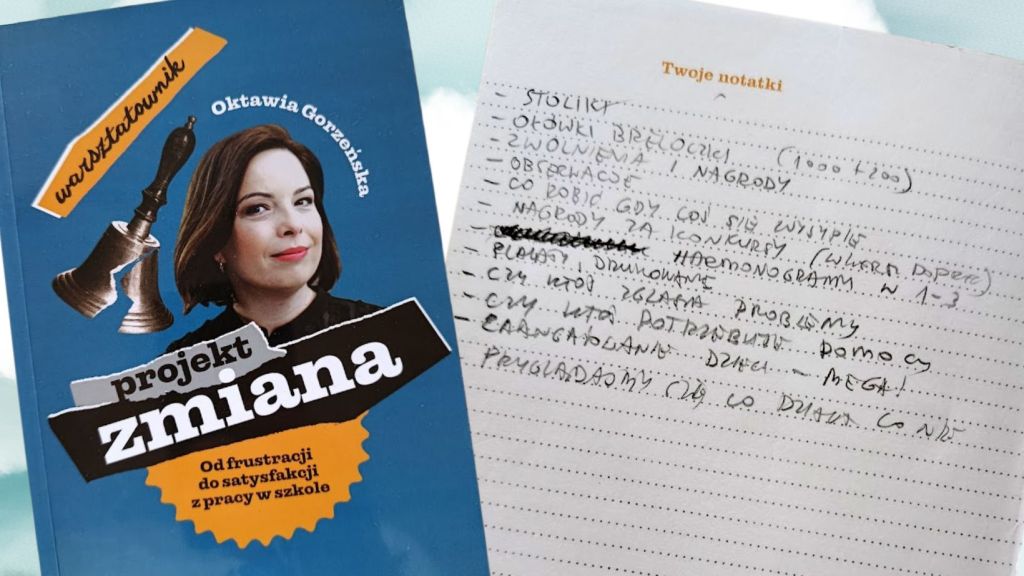 warsztatownik
Oktawia Gorzeńska
projekt
zmiana
Od frustracji
do satysfakcji
z pracy w szkole
Twoje notatki
- STOLIKI
- OŁÓWKI BRELOCZKI (1000 + 200)
- ZWOLNIENIA I NAGRODY
- OBSERWACJE
- CO ROBIĆ GDY COŚ SIĘ WYSYPIE
- NAGRODY ZA KONKURSY
- HARMONOGRAMY W 1-3
- PLAKATY DRUKOWANE
- CZY KTOŚ ZGŁASZA PROBLEMY
- CZY KTOŚ POTRZEBUJE POMOCY
- ZAANGAŻOWANIE DZIECI - MEGA!
PRZYGLĄDAJMY SIĘ CO DZIAŁA CO NIE